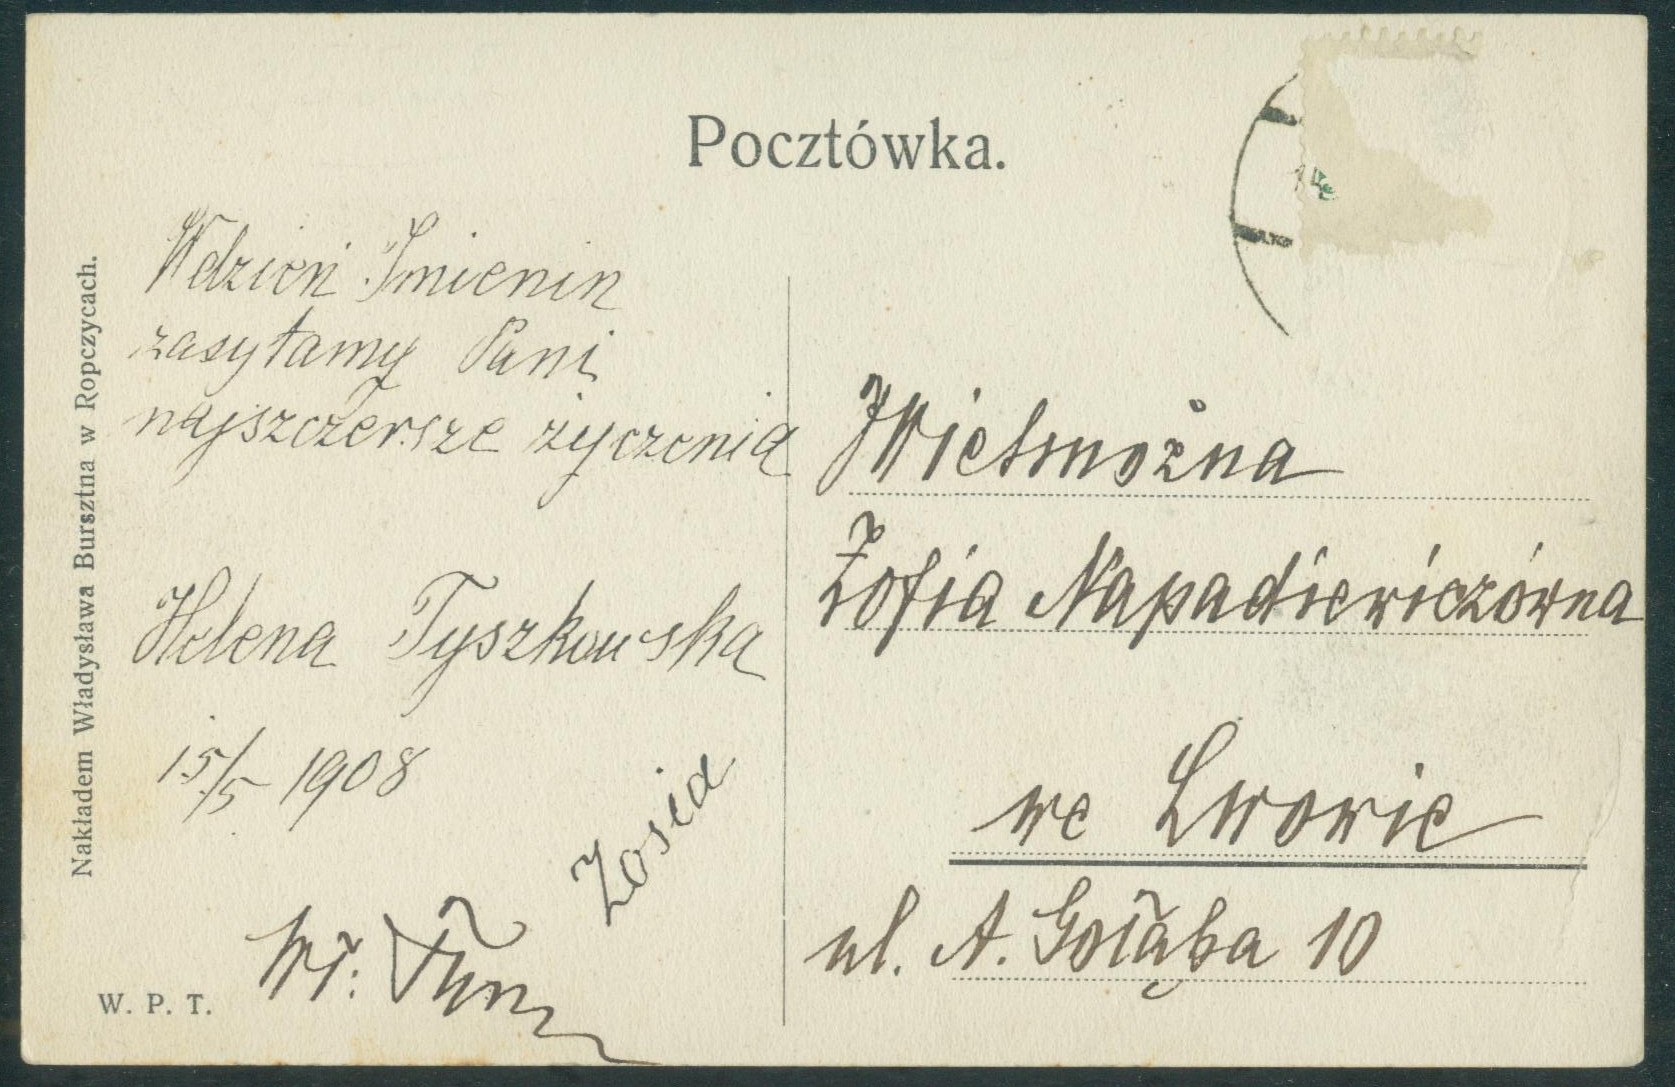 Pocztówka.
W dzień Imienin
zasyłamy Pani
najszczersze życzenia
Helena Tyszkowska
15/5 1908
Zosia
Wł:
W. P. T.
Nakładem Władysława Bursztna w Ropczycach.
JWielmożna
Zofia Napadiewiczówna
we Lwowie
ul. A. Gołąba 10